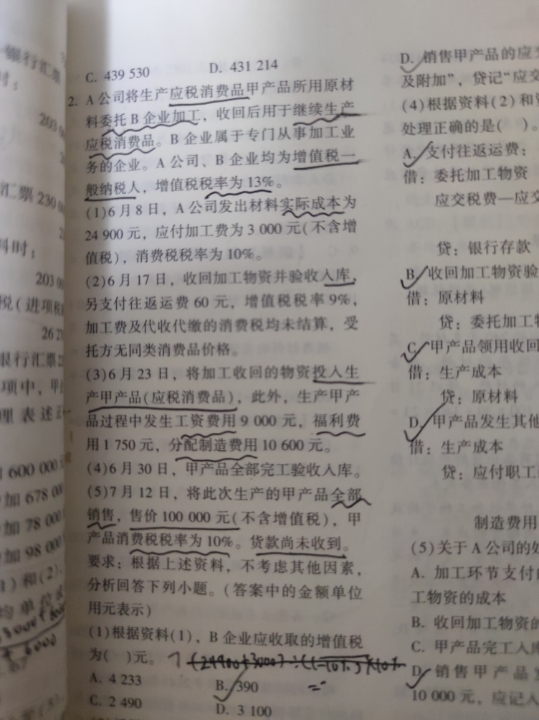 银行汇票
时：
203 0
汇票 230 00
料时：
203 00
税（进项税
26 2
银行汇票
项中，甲
理 表 述 正
600 000
加 678 00
加 78 000
加 98 000
C. 439 530 D. 431 214
2. A 公司将生产应税消费品甲产品所用原材
料委托 B 企业加工，收回后用于继续生产
应税消费品。B 企业属于专门从事加工业
务的企业。A 公司、B 企业均为增值税一
般纳税人，增值税税率为 13%。
(1)6 月 8 日，A 公司发出材料实际成本为
24 900 元，应付加工费为 3 000 元(不含增
值税)，消费税税率为 10%。
(2)6 月 17 日，收回加工物资并验收入库，
另支付往返运费 60 元，增值税税率 9%，
加工费及代收代缴的消费税均未结算，受
托方无同类消费品价格。
(3)6 月 23 日，将加工收回的物资投入生
产甲产品(应税消费品)，此外，生产甲产
品过程中发生工资费用 9 000 元，福利费
用 1 750 元，分配制造费用 10 600 元。
(4)6 月 30 日，甲产品全部完工验收入库。
(5)7 月 12 日，将此次生产的甲产品全部
销售，售价 100 000 元(不含增值税)，甲
产品消费税税率为 10%。货款尚未收到。
要求：根据上述资料，不考虑其他因素，
分析回答下列小题。(答案中的金额单位
用元表示)
(1)根据资料(1)，B 企业应收取的增值税
为( )元。
A. 4 233 B. 390
C. 2 490 D. 3 100
D. 销售甲产品的应交
及附加”，贷记“应交
(4)根据资料(2)和
处理正确的是( )。
A. 支付往返运费：
借：委托加工物资
应交税费—应交
贷：银行存款
B. 收回加工物资验
借：原材料
贷：委托加工物
C. 甲产品领用收回
借：生产成本
贷：原材料
D. 甲产品发生其他
借：生产成本
贷：应付职工
制造费用
(5)关于 A 公司的处
A. 加工环节支付的
工物资的成本
B. 收回加工物资的
C. 甲产品完工入库
D. 销售甲产品
10 000 元，应记入